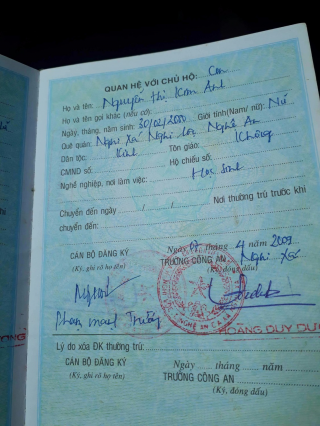 QUAN HỆ VỚI CHỦ HỘ: Con
Họ và tên: Nguyễn Thị Kim Anh
Họ và tên gọi khác (nếu có):
Ngày, tháng, năm sinh: 30/02/2000 Giới tính(Nam/ nữ): Nữ
Quê quán: Nghi Xá Nghi Lộc Nghệ An
Dân tộc: Kinh Tôn giáo: Không
CMND số: Hộ chiếu số:
Nghề nghiệp, nơi làm việc: Học sinh
Chuyển đến ngày / / Nơi thường trú trước khi
chuyển đến:
Ngày 07 tháng 4 năm 2009
CÁN BỘ ĐĂNG KÝ TRƯỞNG CÔNG AN Nghi Xá
(Ký, ghi rõ họ tên) (Ký, đóng dấu)
Trường
HOÀNG DUY
Lý do xóa ĐK thường trú:
Ngày tháng năm
CÁN BỘ ĐĂNG KÝ TRƯỞNG CÔNG AN
(Ký, ghi rõ họ tên) (Ký, đóng dấu)